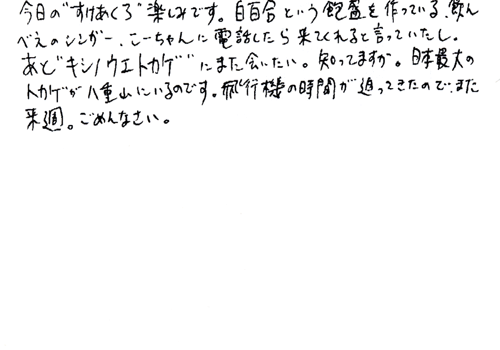 今日の"すけあくろ"楽しみです。白百合という泡盛を作っている、飲ん
べえのシンガー、こーちゃんに電話したら来てくれると言っていたし。
あと"キシノウエトカゲ"にまた会いたい。知ってますか。日本最大の
トカゲが八重山にいるのです。飛行機の時間が迫ってきたので、また
来週。ごめんなさい。